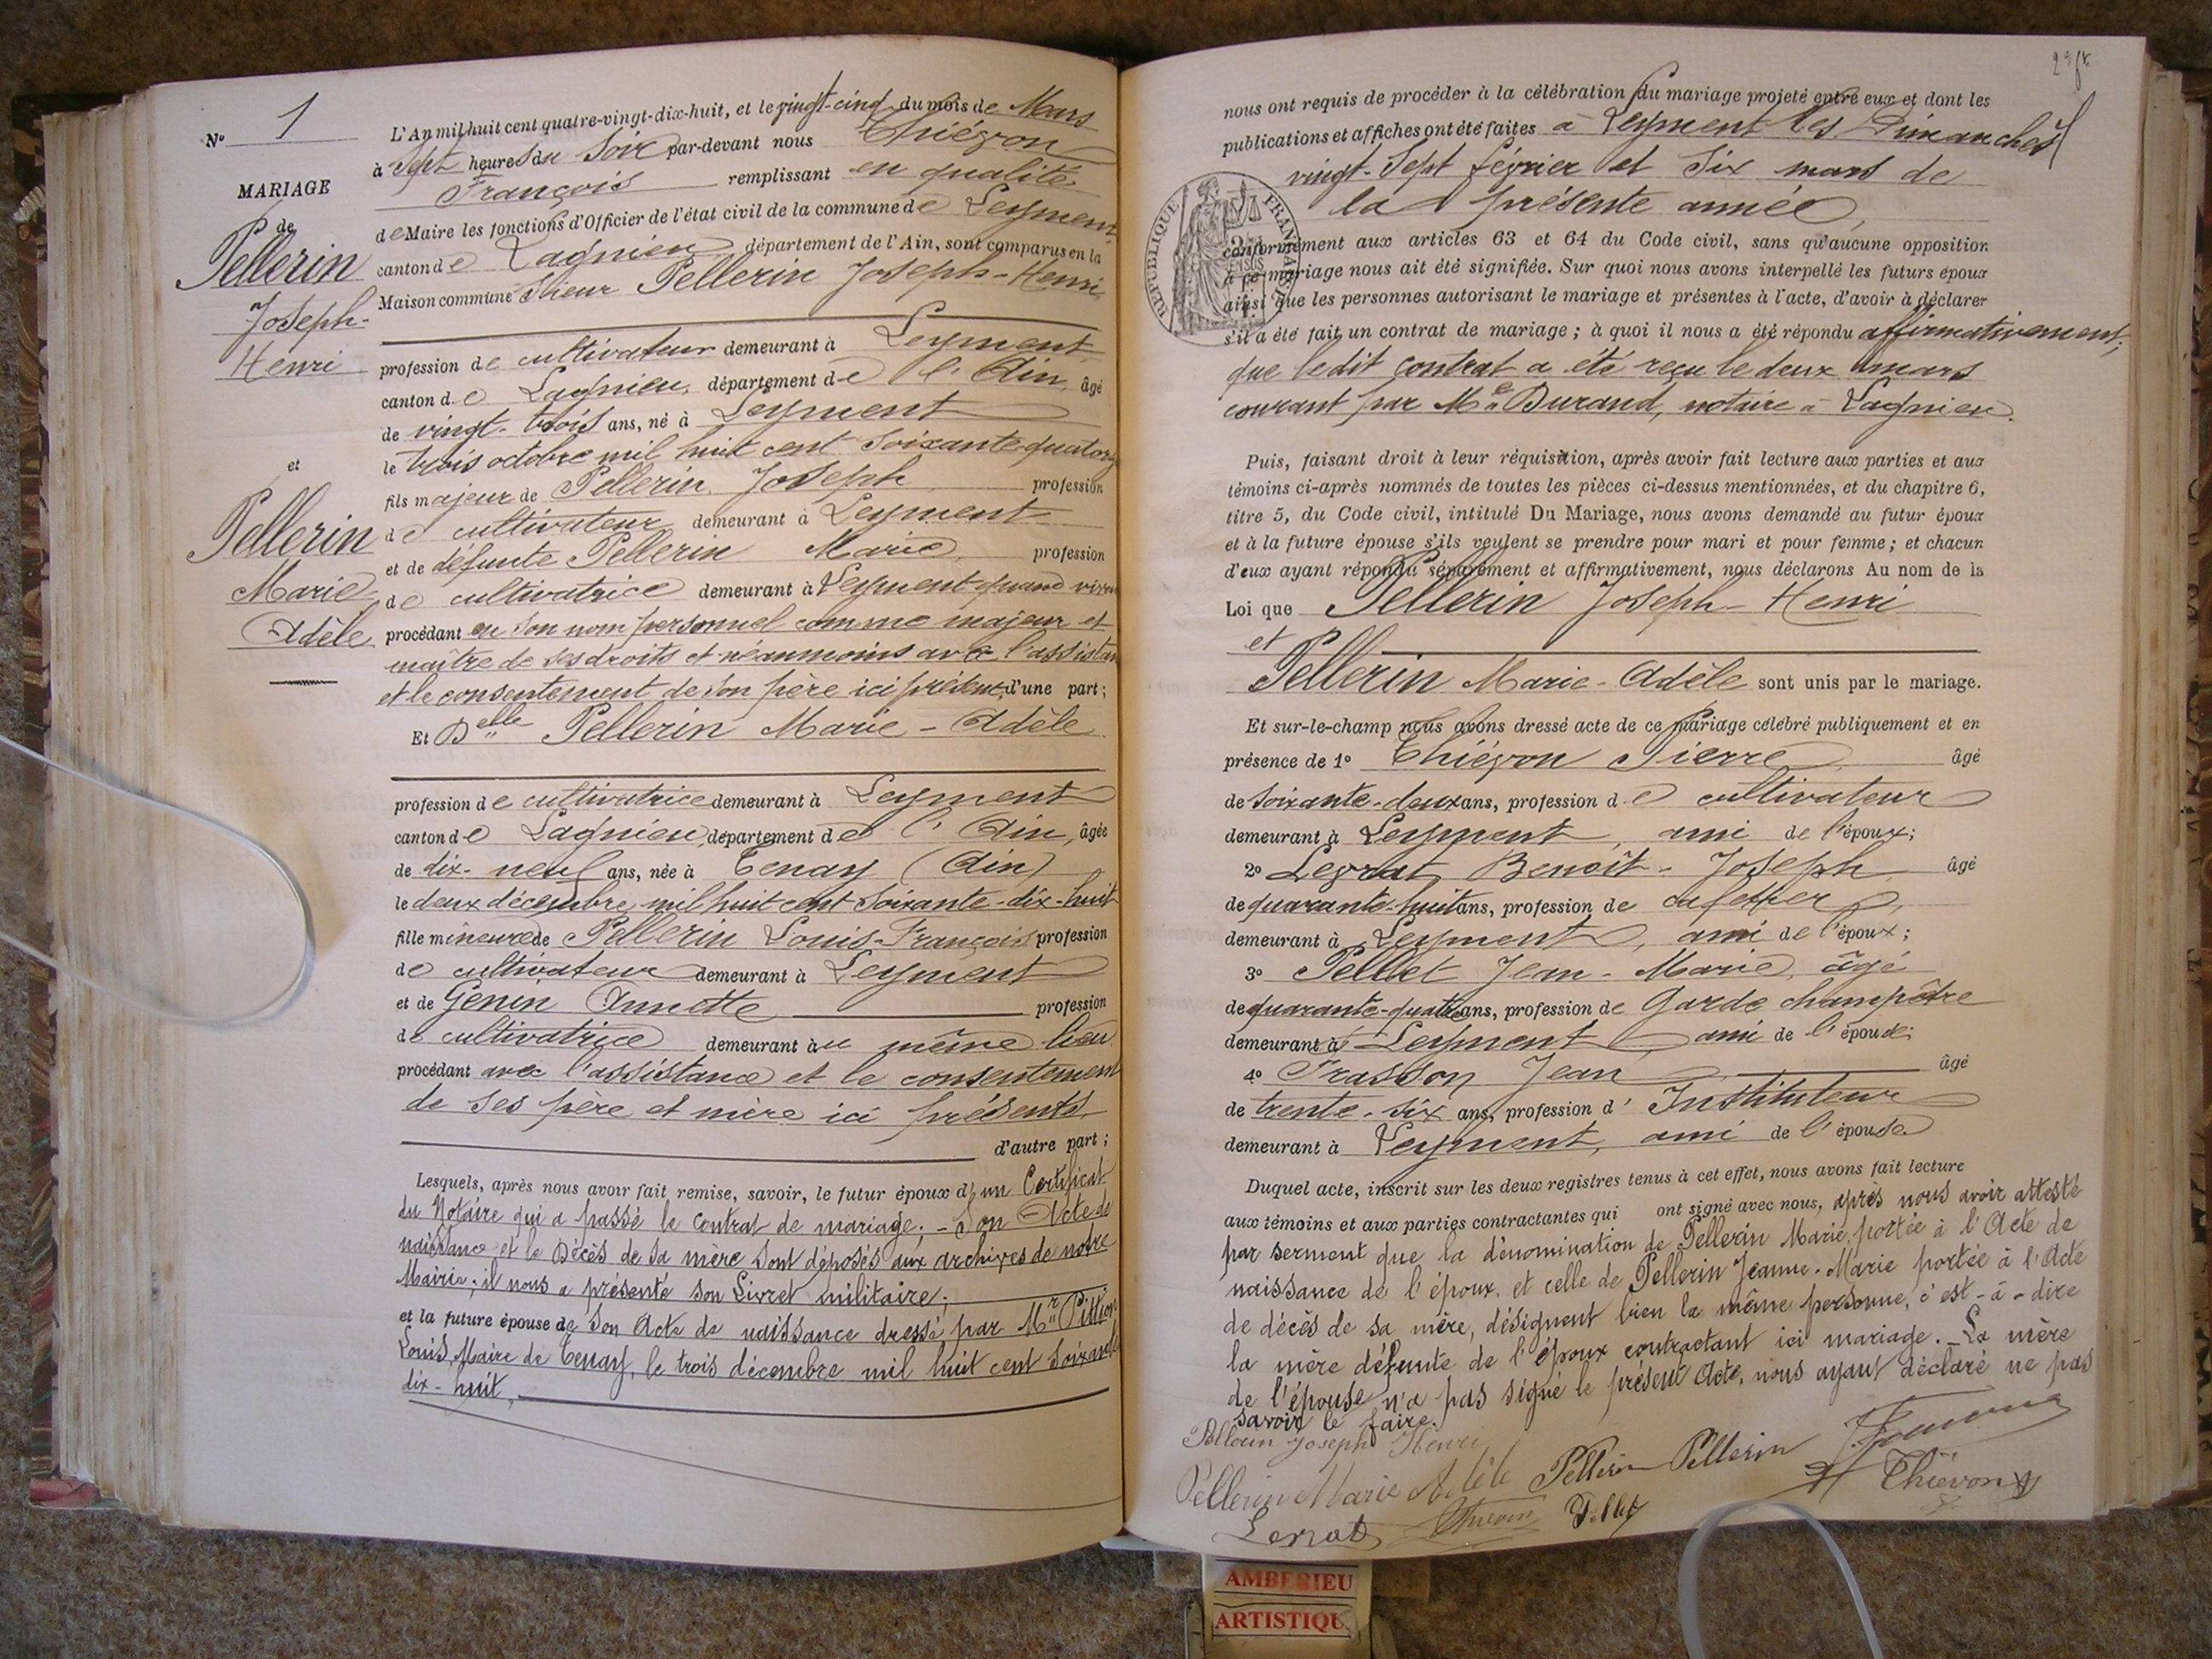 Nº 1
MARIAGE
de
Pellerin
Joseph-
Henri
et
Pellerin
Marie
Adèle
L'An mil huit cent quatre-vingt-dix-huit, et le vingt-cinq du mois de Mars
à Sept heures du Soir par-devant nous Thiévon
François remplissant en qualité
de Maire les fonctions d'Officier de l'état civil de la commune de Leyment
canton de Lagnieu département de l'Ain, sont comparus en la
Maison commune Sieur Pellerin Joseph-Henri
profession de cultivateur demeurant à Leyment
canton de Lagnieu, département de l'Ain, âgé
de vingt-trois ans, né à Leyment
le trois octobre mil huit cent soixante-quatorze
fils majeur de Pellerin Joseph profession
de cultivateur demeurant à Leyment
et de défunte Pellerin Marie, profession
de cultivatrice demeurant à Leyment quand vivait
procédant en son nom personnel comme majeur et
maître de ses droits et néanmoins avec l'assistan
et le consentement de son père ici présent, d'une part;
Et Delle Pellerin Marie-Adèle
profession de cultivatrice demeurant à Leyment
canton de Lagnieu, département de l'Ain, âgée
de dix-neuf ans, née à Tenay (Ain)
le deux décembre mil huit cent soixante-dix-huit
fille mineure de Pellerin Louis-François profession
de cultivateur demeurant à Leyment
et de Genin Annette profession
de cultivatrice demeurant au même lieu
procédant avec l'assistance et le consentement
de ses père et mère ici présents
d'autre part;
Lesquels, après nous avoir fait remise, savoir, le futur époux d'un Certificat
du Notaire qui a passé le contrat de mariage; - Son Acte de
naissance et le Décès de sa mère sont déposés aux archives de notre
Mairie; il nous a présenté son Livret militaire;
et la future épouse de Son Acte de naissance dressé par Mr
Louis, Maire de Tenay, le trois décembre mil huit cent soixante
dix-huit,
nous ont requis de procéder à la célébration du mariage projeté entre eux et dont les
publications et affiches ont été faites à Leyment les Dimanches
vingt-sept février et six mars de
la présente année,
conformément aux articles 63 et 64 du Code civil, sans qu'aucune opposition
à ce mariage nous ait été signifiée. Sur quoi nous avons interpellé les futurs époux
ainsi que les personnes autorisant le mariage et présentes à l'acte, d'avoir à déclarer
s'il a été fait un contrat de mariage; à quoi il nous a été répondu affirmativement,
que ledit contrat a été reçu le deux mars
courant par Me Durand, notaire à Lagnieu.
RÉPUBLIQUE FRANÇAISE
Puis, faisant droit à leur réquisition, après avoir fait lecture aux parties et aux
témoins ci-après nommés de toutes les pièces ci-dessus mentionnées, et du chapitre 6,
titre 5, du Code civil, intitulé Du Mariage, nous avons demandé au futur époux
et à la future épouse s'ils veulent se prendre pour mari et pour femme; et chacun
d'eux ayant répondu séparément et affirmativement, nous déclarons Au nom de la
Loi que Pellerin Joseph-Henri
et
Pellerin Marie-Adèle sont unis par le mariage.
Et sur-le-champ nous avons dressé acte de ce mariage célébré publiquement et en
présence de 1º Thiévon Pierre âgé
de soixante-deux ans, profession de cultivateur
demeurant à Leyment, ami de l'époux;
2º Leyrat Benoît-Joseph âgé
de quarante-huit ans, profession de cafetier,
demeurant à Leyment, ami de l'époux;
3º Pellet Jean-Marie, âgé
de quarante-quatre ans, profession de Garde champêtre
demeurant à Leyment, ami de l'épouse;
4º Frasson Jean âgé
de trente-six ans, profession d'Instituteur
demeurant à Leyment, ami de l'épouse
Duquel acte, inscrit sur les deux registres tenus à cet effet, nous avons fait lecture
aux témoins et aux parties contractantes qui ont signé avec nous, après nous avoir attesté
par serment que la dénomination de Pellerin Marie, portée à l'Acte de
naissance de l'époux, et celle de Pellerin Jeanne-Marie portée à l'Acte
de décès de sa mère, désignent bien la même personne, c'est-à-dire
la mère défunte de l'époux contractant ici mariage. La mère
de l'épouse n'a pas signé le présent Acte, nous ayant déclaré ne pas
savoir le faire.
Pellerin Joseph Henri
Pellerin Marie Adèle Pellerin Pellerin
Thiévon
Leyrat Thiévon Pellet
AMBERIEU
ARTISTIQU